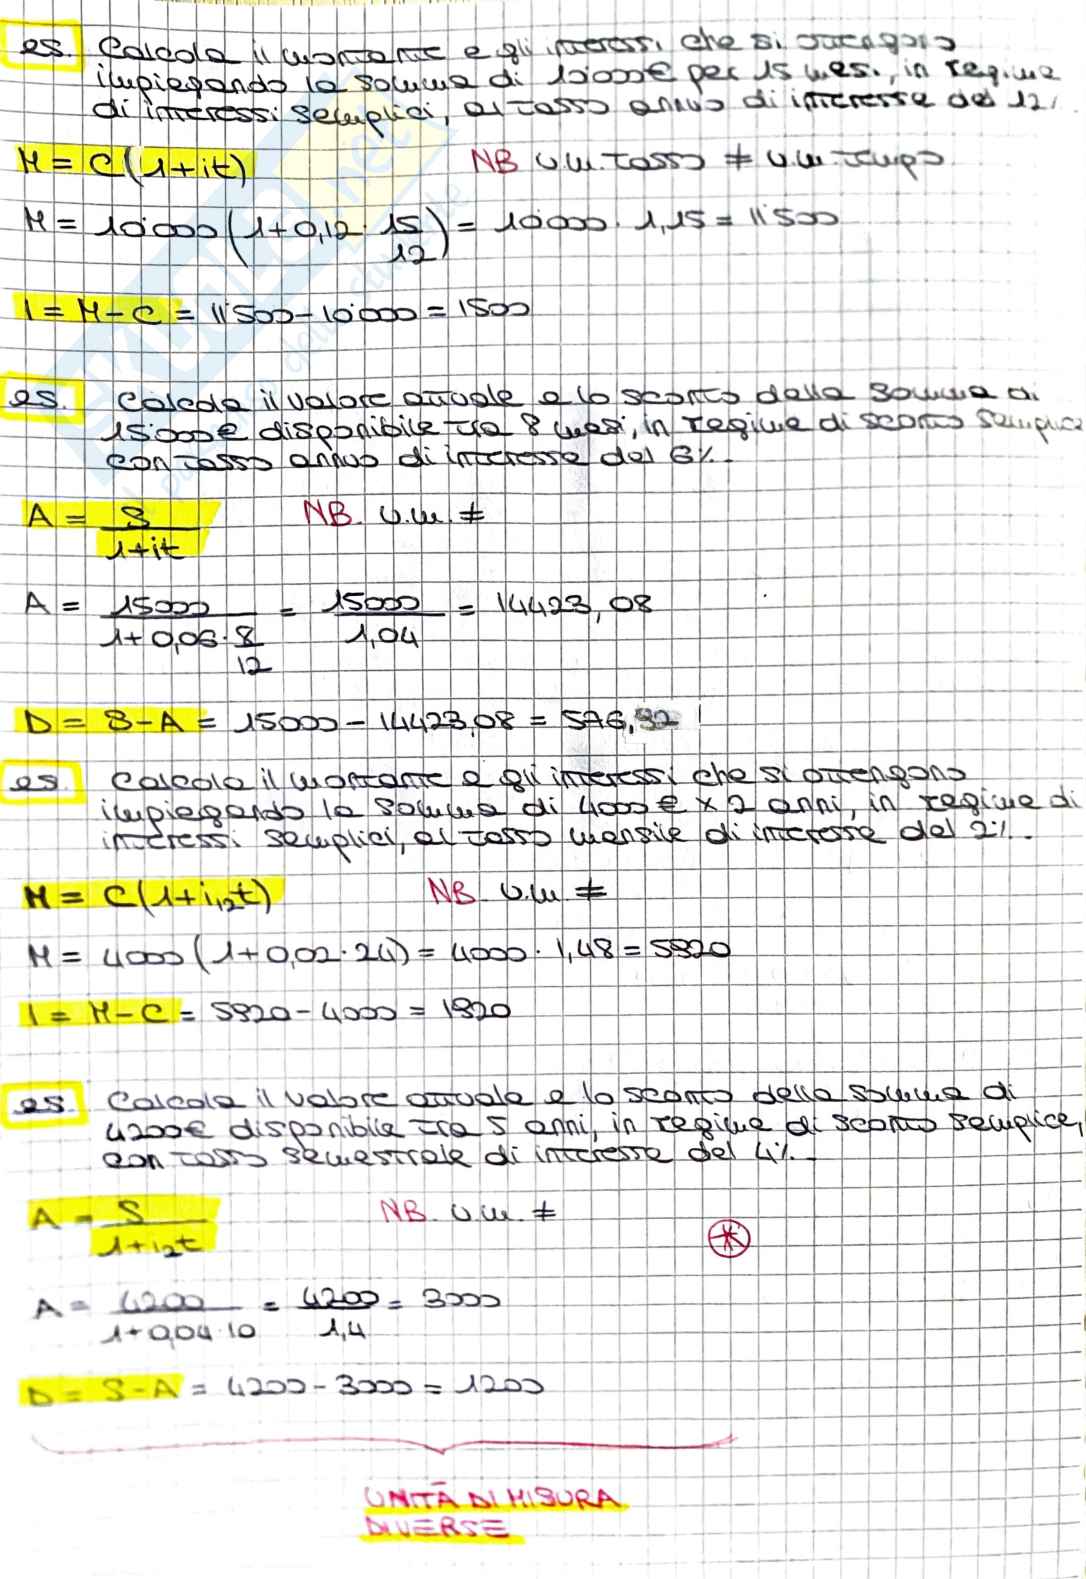 es. Calcola il montante e gli interessi che si ottengono
impiegando la somma di 10000€ per 15 mesi, in regime
di interessi semplici, al tasso annuo di interesse del 12%.
M = C(1+it) NB u.m. tasso ≠ u.m. tempo
M = 10'000 (1+0,12 · 15/12) = 10'000 · 1,15 = 11'500
I = M-C = 11'500-10'000 = 1500
es. Calcola il valore attuale e lo sconto della somma di
15000€ disponibile tra 8 mesi, in regime di sconto semplice
con tasso annuo di interesse del 6%.
A = S/(1+it) NB. u.m. ≠
A = 15000/(1+0,06·8/12) = 15000/1,04 = 14423,08
D = S-A = 15000-14423,08 = 576,92
es. Calcola il montante e gli interessi che si ottengono
impiegando la somma di 4000€ x 2 anni, in regime di
interessi semplici, al tasso mensile di interesse del 2%.
M = C(1+i₁₂t) NB. u.m. ≠
M = 4000 (1+0,02·24) = 4000 · 1,48 = 5920
I = M-C = 5920-4000 = 1920
es. Calcola il valore attuale e lo sconto della somma di
4200€ disponibile tra 5 anni, in regime di sconto semplice,
con tasso semestrale di interesse del 4%.
A = S/(1+i₂t) NB. u.m. ≠
A = 4200/(1+0,04·10) = 4200/1,4 = 3000
D = S-A = 4200-3000 = 1200
UNITÀ DI MISURA
DIVERSE